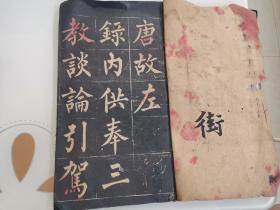 唐故左
錄內供奉三
教談論引駕
街